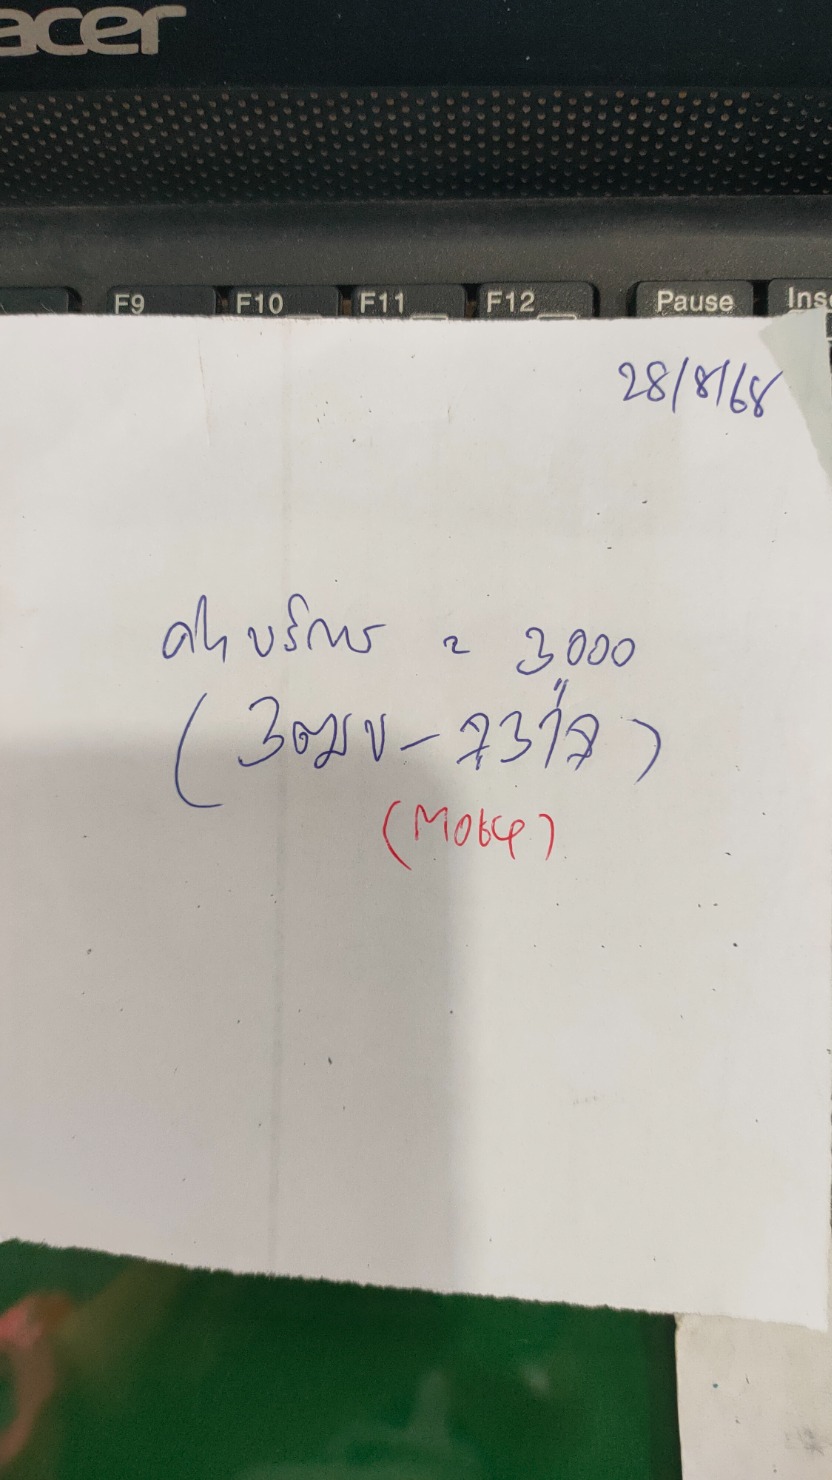 acer
F9 F10 F11 F12 Pause Inse
28/8/68
ค่าบริการ = 3,000
(3ฒข-7317)
(M064)